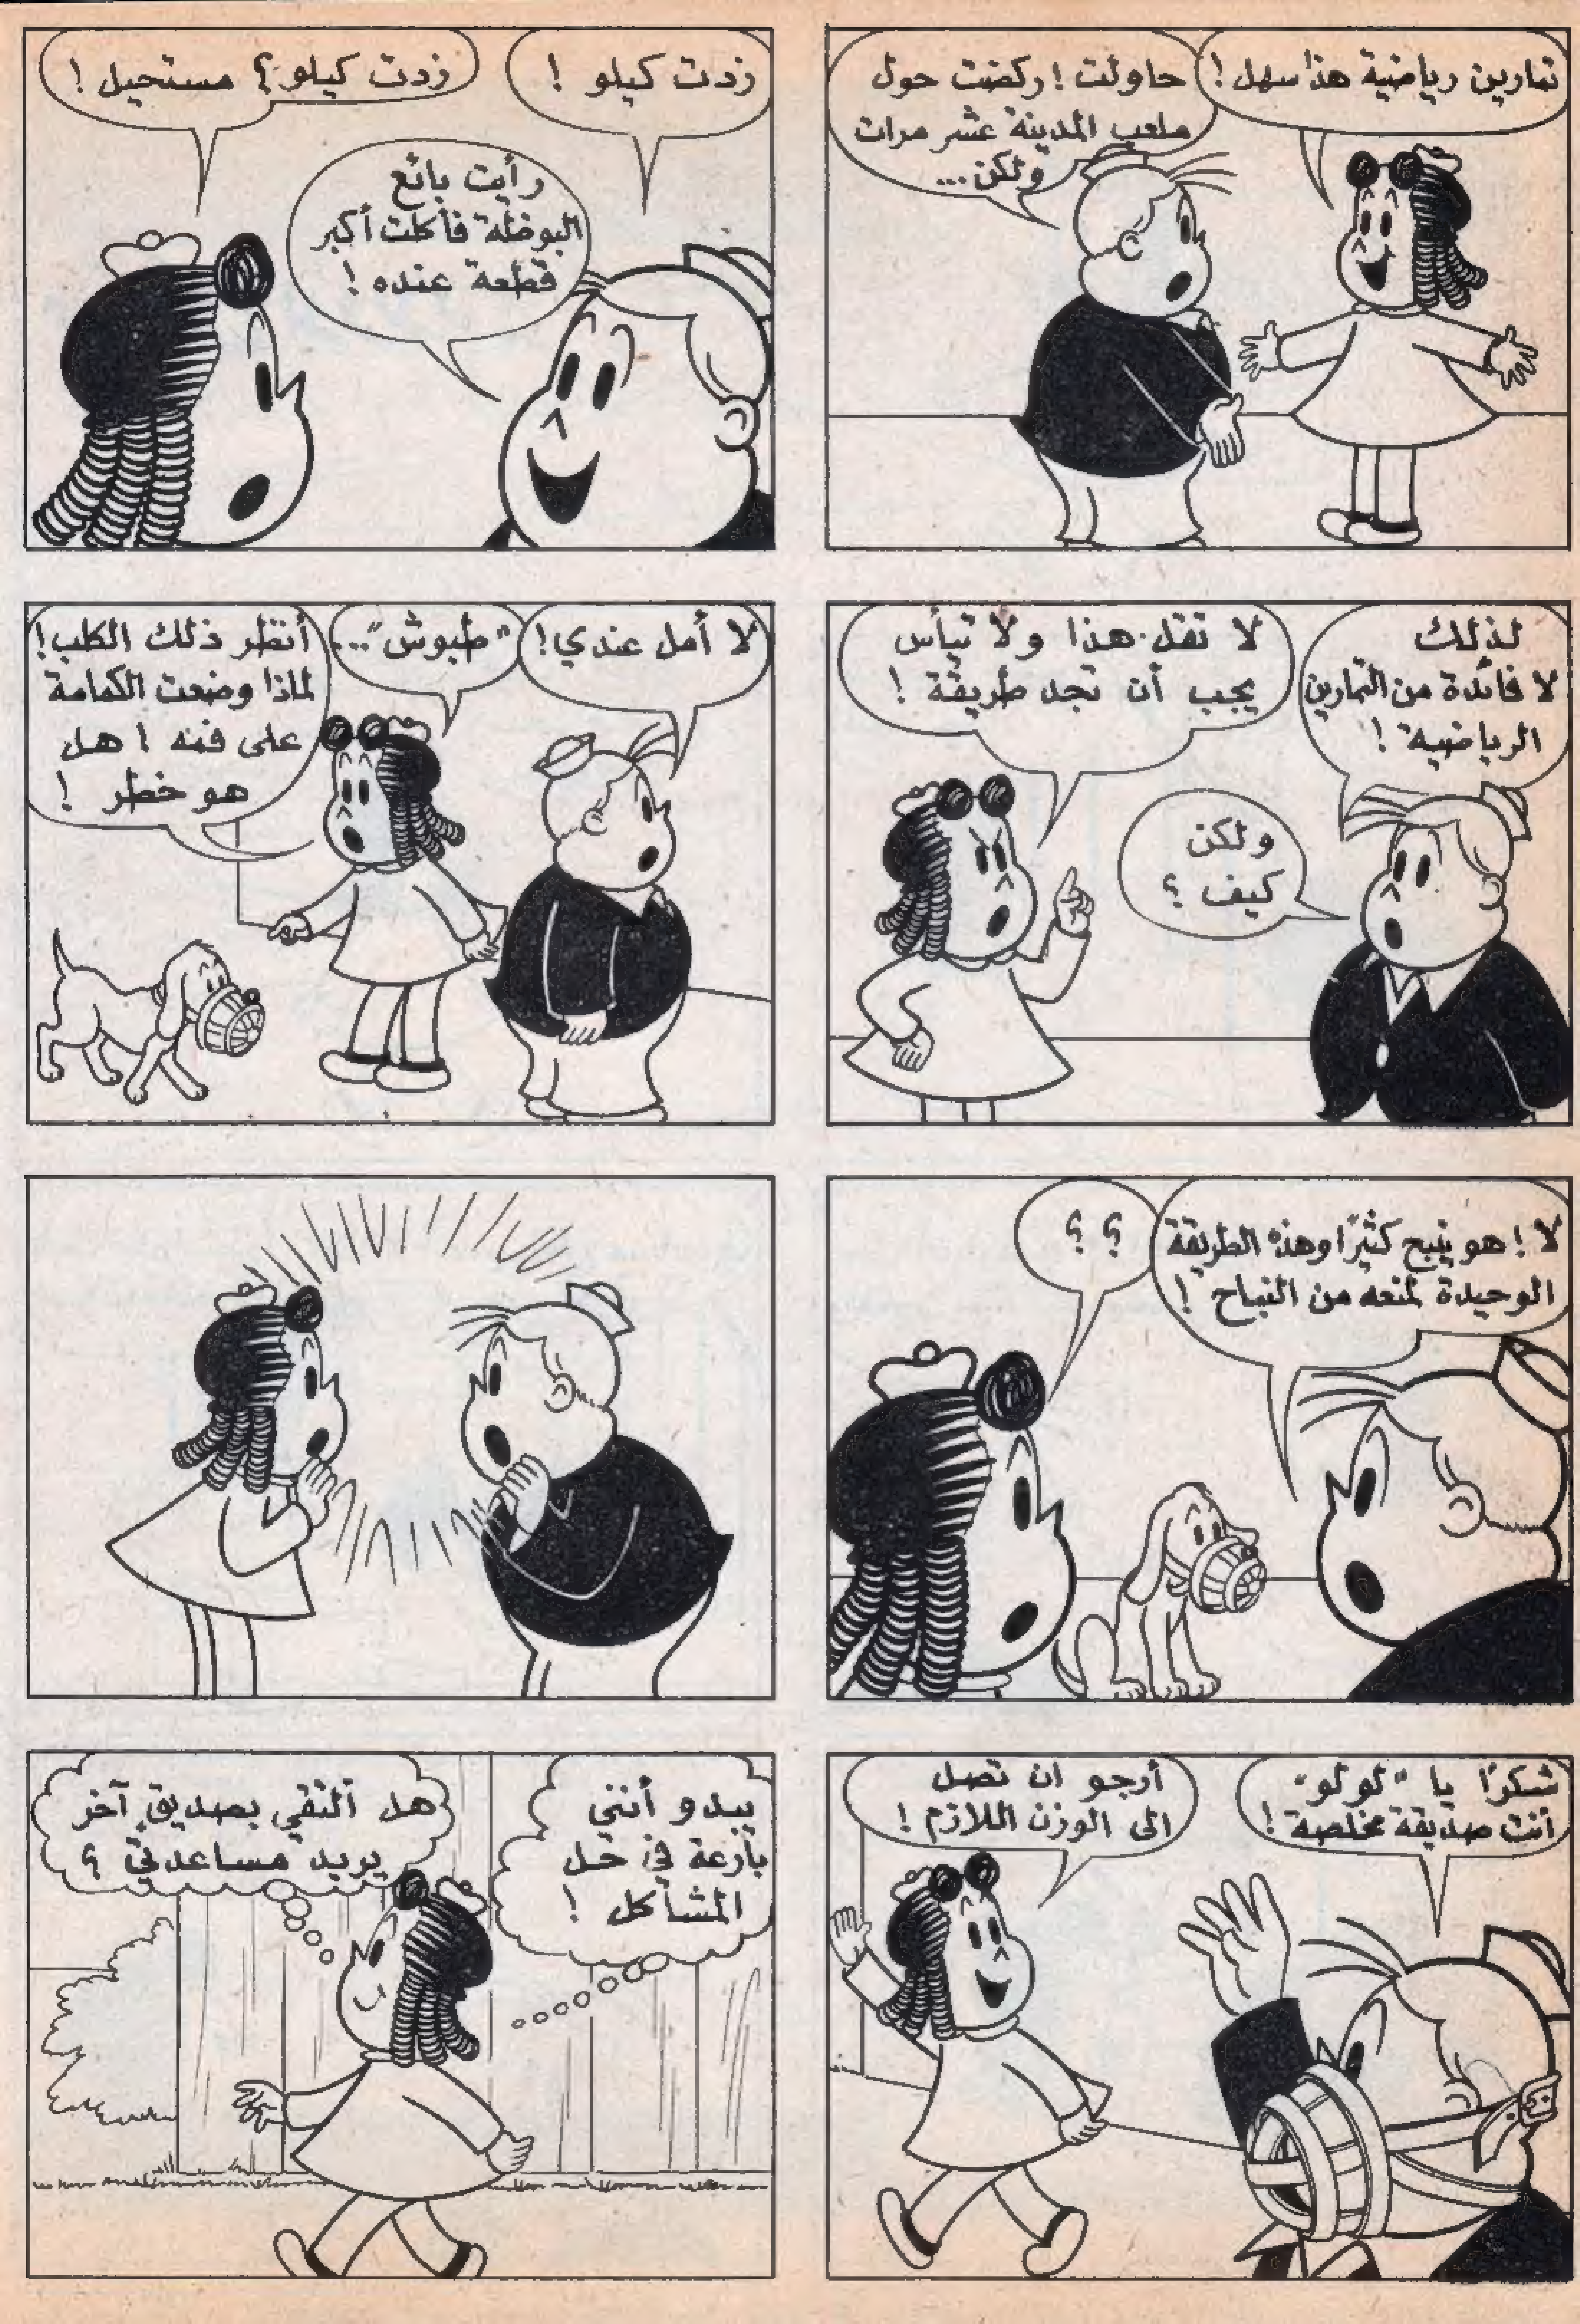 تمارين رياضية هذا سهل!
حاولت! ركضت حول
ملعب المدينة عشر مرات
ولكن...
زدت كيلو!
زدت كيلو؟ مستحيل!
رأيت بائع
البوظة فأكلت أكبر
قطعة عنده!
لذلك
لا فائدة من التمارين
الرياضية!
لا تقل هذا ولا تيأس
يجب أن تجد طريقة!
ولكن
كيف؟
لا أمل عندي!
"طبوش"...
أنظر ذلك الكلب!
لماذا وضعت الكمامة
على فمه! هل
هو خطر!
لا! هو ينبح كثيرًا وهذه الطريقة
الوحيدة لمنعه من النباح!
؟ ؟
شكرًا يا "لولو"
أنت صديقة مخلصة!
أرجو ان تصل
الى الوزن اللازم!
يبدو أنني
بارعة في حل
المشاكل!
هل ألتقي بصديق آخر
يريد مساعدتي؟